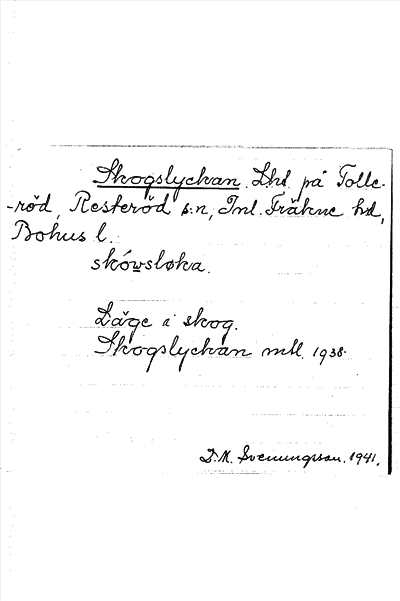 Skogslyckan. Lht på Tolle-
-röd, Resteröd s:n, Inl. Fräkne hd,
Bohus l.
skówsløka.
Läge i skog.
Skogslyckan mtl. 1938.
D.M. Svenungsson. 1941.